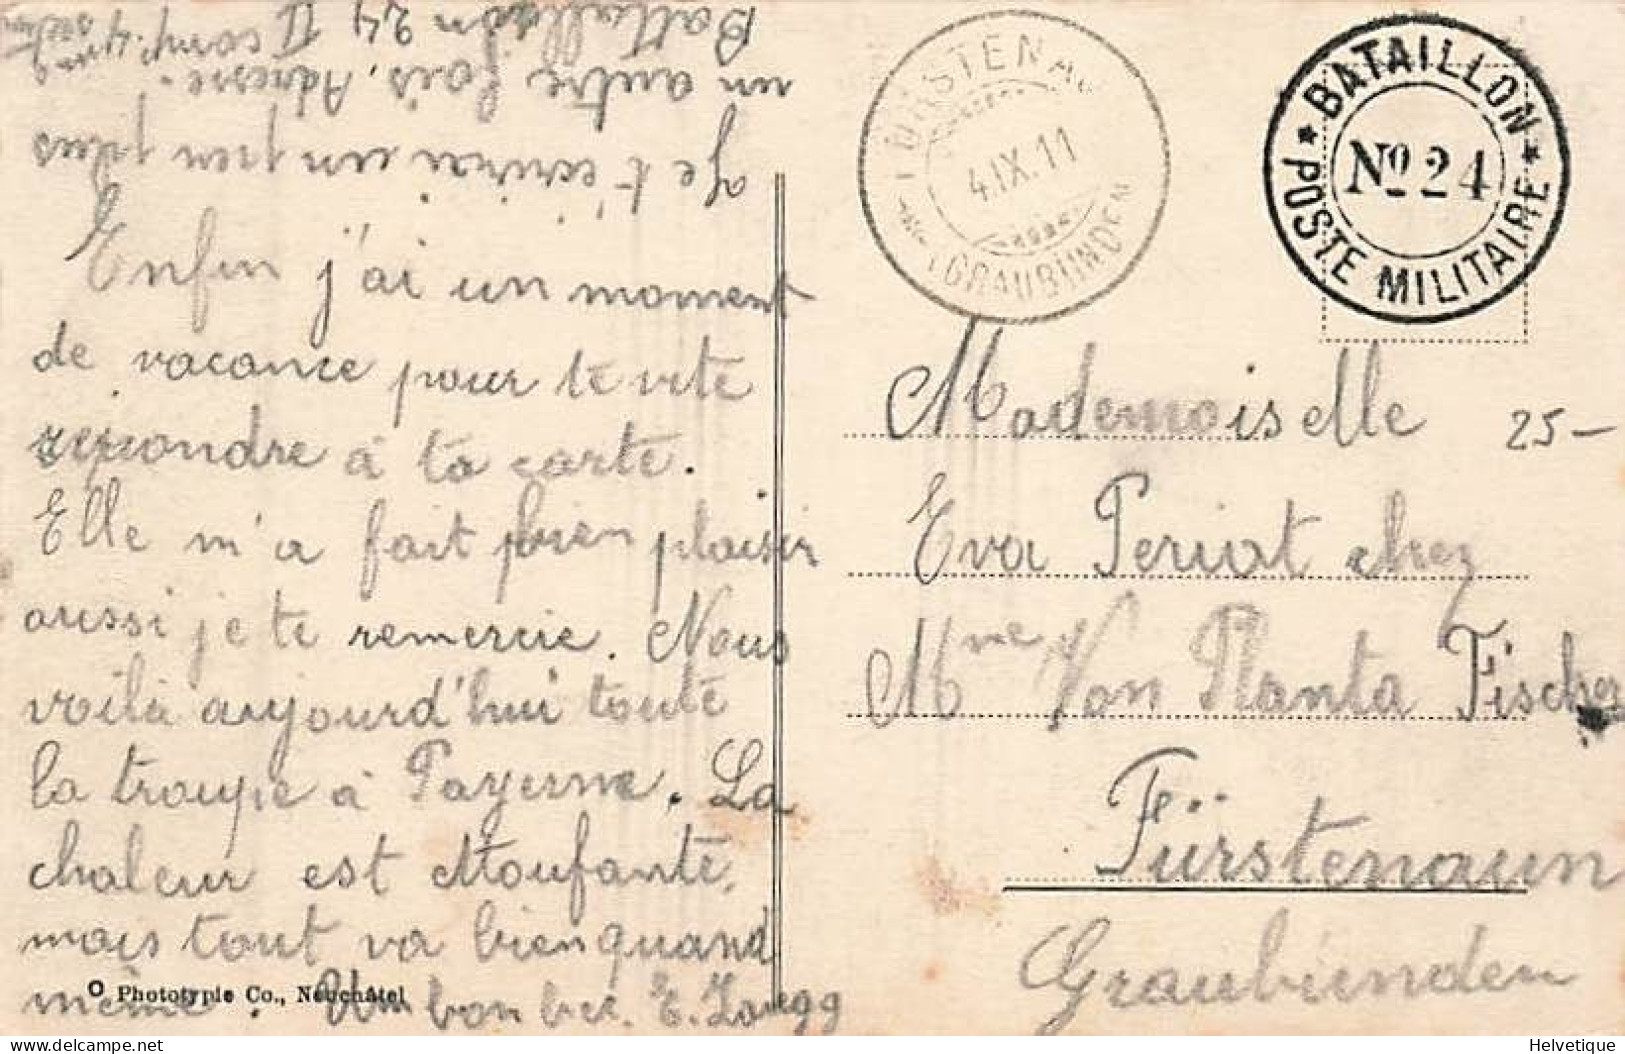 Enfin j'ai un moment
de vacance pour te vite
répondre à ta carte.
Elle m'a fait bien plaisir
aussi je te remercie. Nous
voilà aujourd'hui toute
la troupe à Payerne. La
chaleur est étoufante,
mais tout va bien quand
même. Un bon bec. E.
Je t'écrirai un peu plus
un autre fois, Adresse.
Bataillon 24 II comp.
Phototypie Co., Neuchâtel
FÜRSTENAU
4.IX.11
(GRAUBÜNDEN)
BATAILLON
No 24
POSTE MILITAIRE
Mademoiselle
25 —
Eva Periat chez
Mme Von Planta Fischer
Fürstenaun
Graubünden
delcampe.net
Helvetique